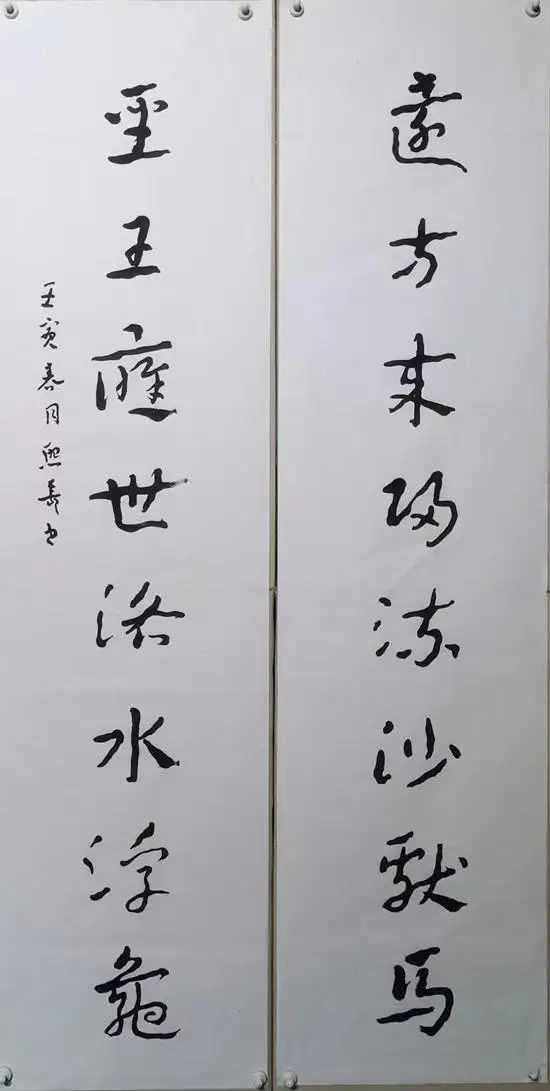 遠方来歸流沙獻馬
聖王應世洛水浮龜
壬寅春月熙書